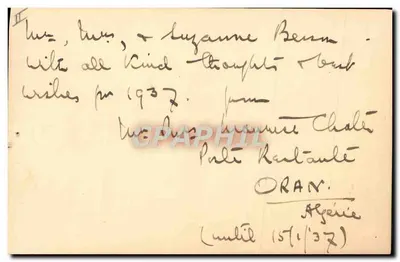 II
Mr, Mrs, & Suzanne
with all kind thoughts & best
wishes for 1937. from
Mr Mrs
CPAPHIL
Poste Restante
ORAN.
Algérie
(until 15/1/37)